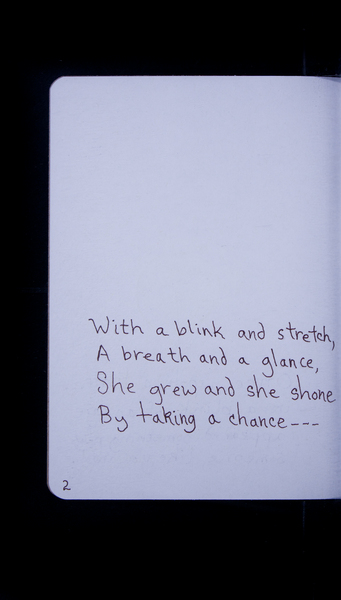 With a blink and stretch,
A breath and a glance,
She grew and she shone
By taking a chance---
2